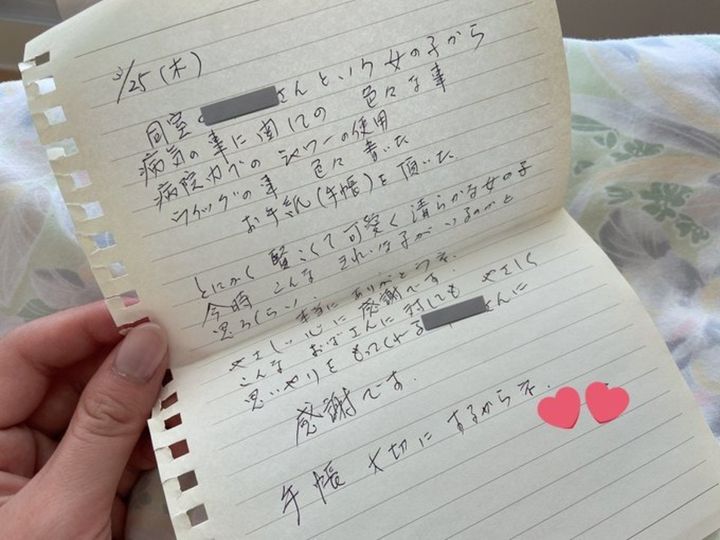 3/25(木)
同室の さんという女の子から
病気の事に関しての 色々な事
病院内でのシャワーの使用
ウィッグの事 色々 書いた
お手紙(手帳)を頂いた
とにかく 賢こくて可愛く清らかな女の子
今時 こんな きれいな子がいるのかと
思うくらい 本当に ありがとうネ.
やさしい心に 感謝です.
こんな おばさんに 対しても やさしく
思いやりを もってくれる さんに
感謝です.
手帳 大切に するからネ.